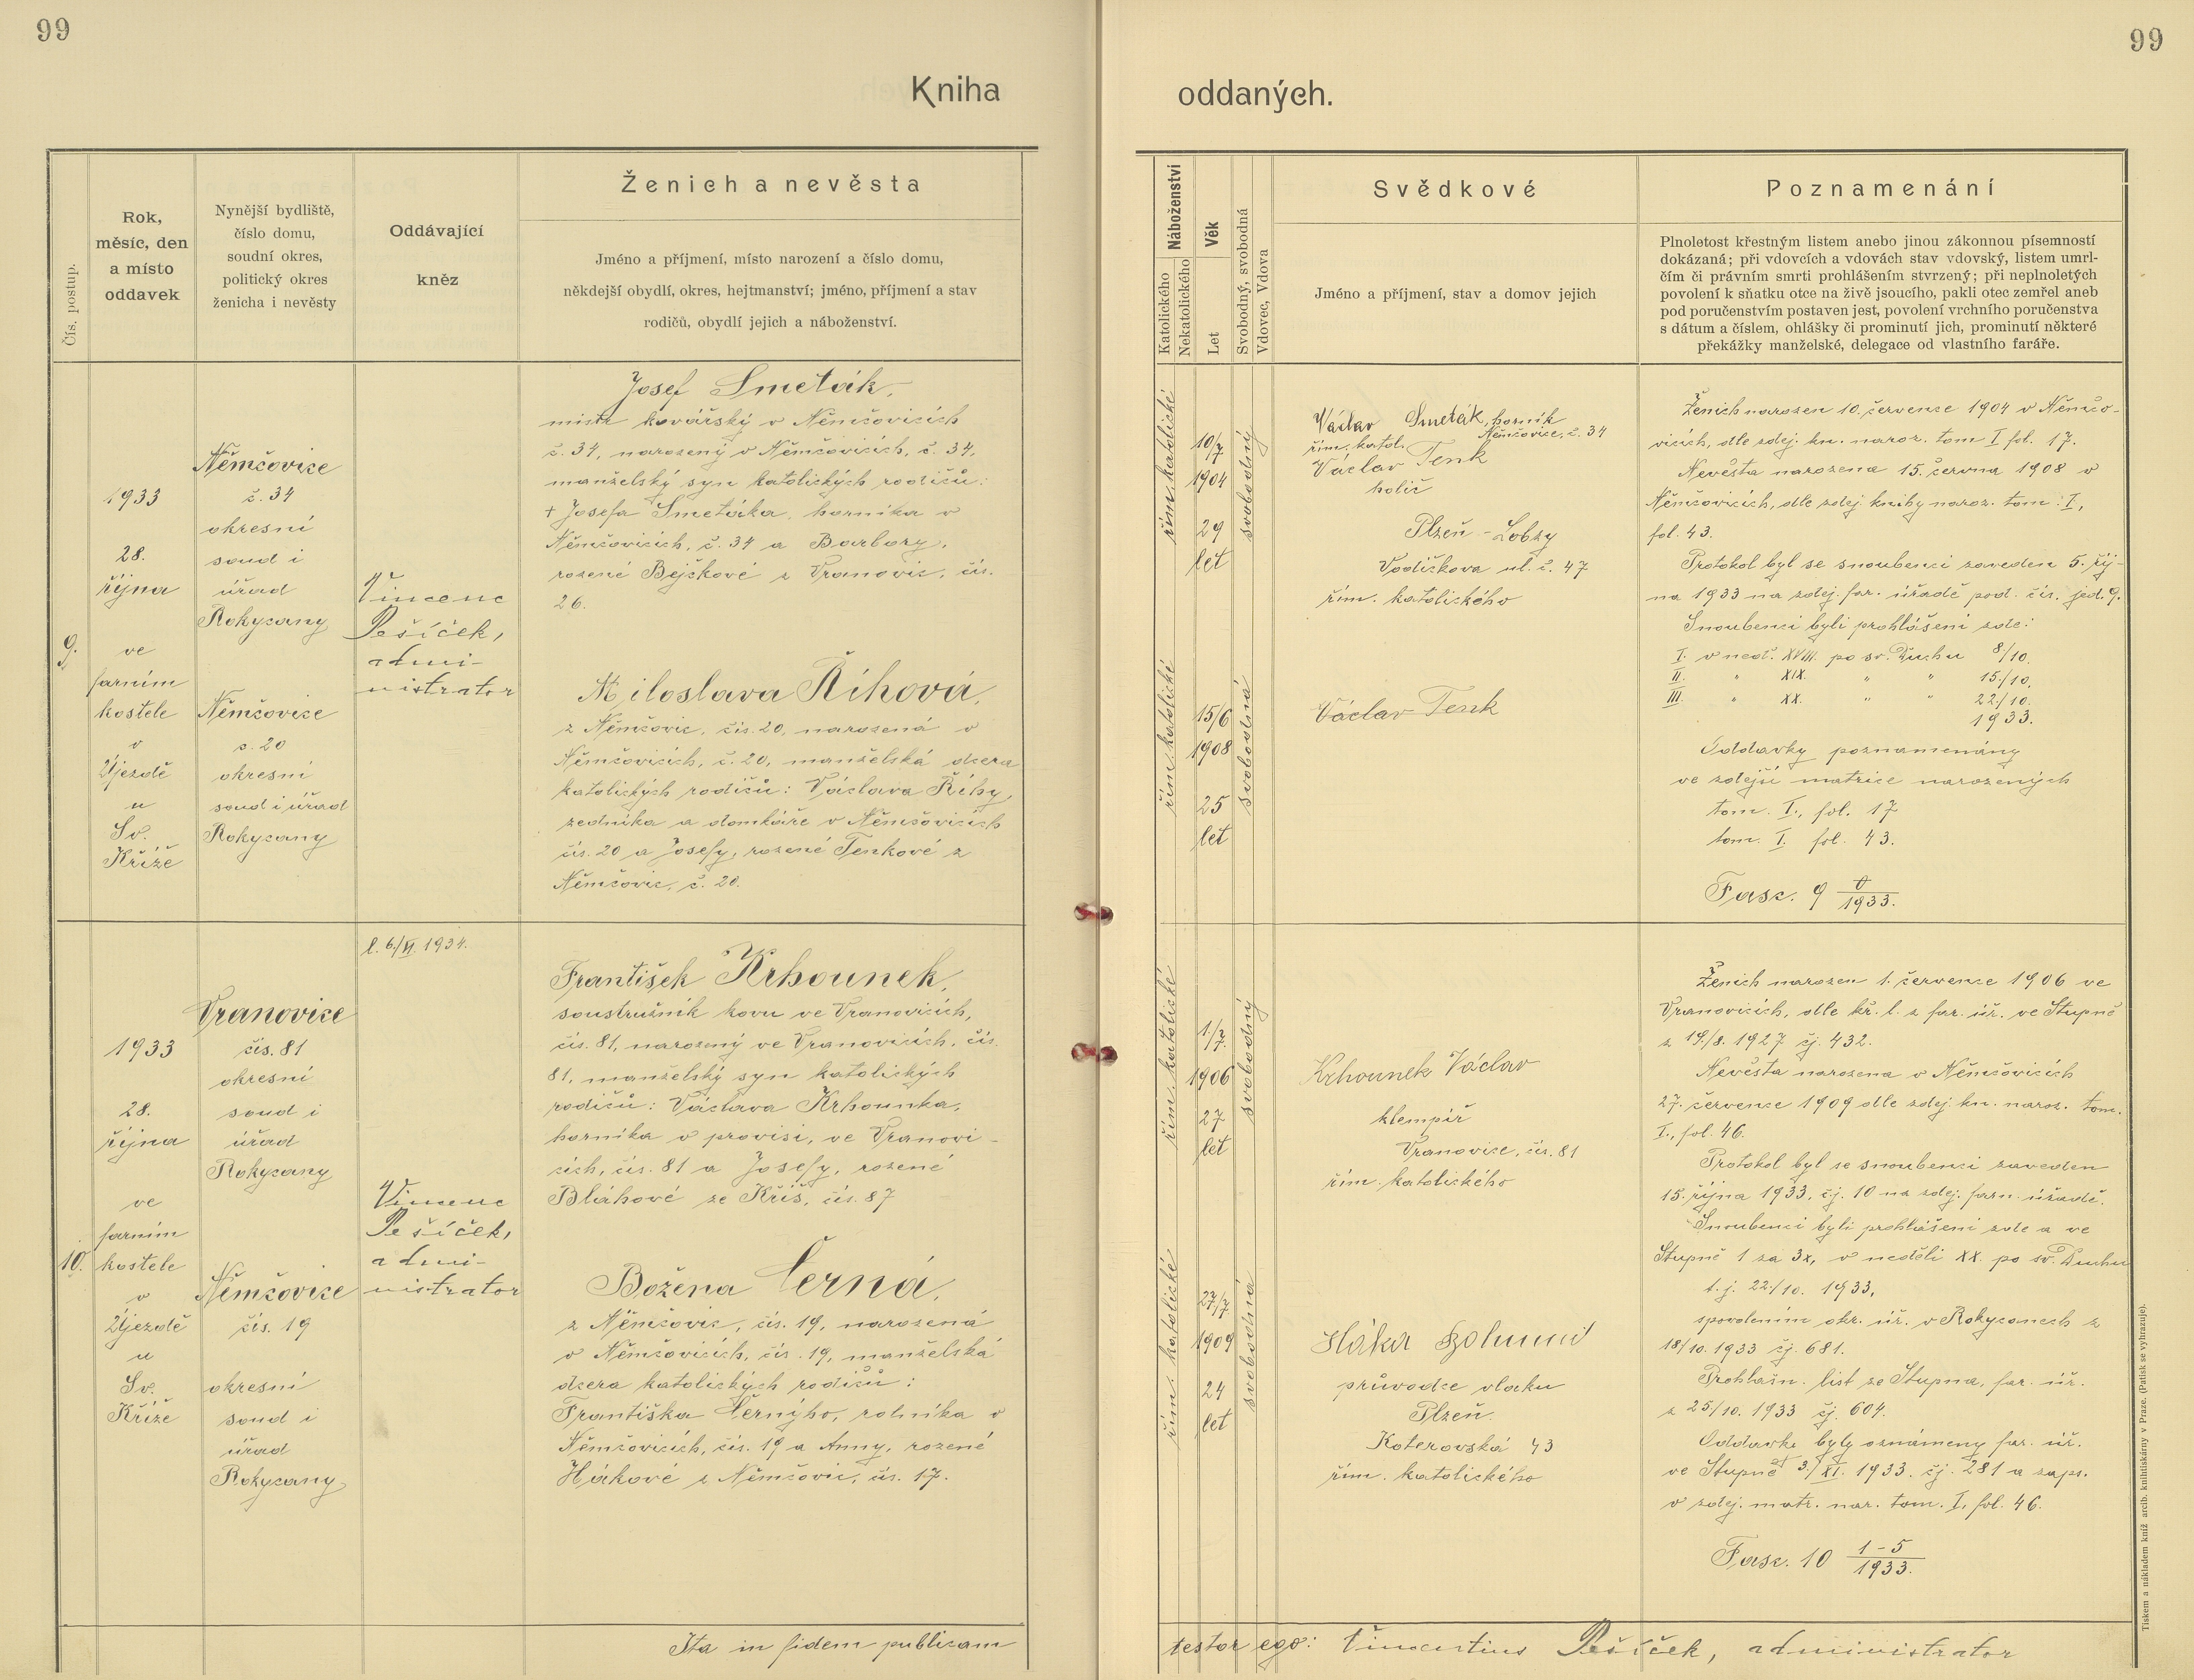 99
99
Kniha
oddaných.
Čís. postup.
Rok,
měsíc, den
a místo
oddavek
Nynější bydliště,
číslo domu,
soudní okres,
politický okres
ženicha i nevěsty
Oddávající
kněz
Ženich a nevěsta
Jméno a příjmení, místo narození a číslo domu,
někdejší obydlí, okres, hejtmanství; jméno, příjmení a stav
rodičů, obydlí jejich a náboženství.
Náboženství
Katolického
Nekatolického
Věk
Let
Svobodný, svobodná
Vdovec, Vdova
Svědkové
Jméno a příjmení, stav a domov jejich
Poznamenání
Plnoletost křestným listem anebo jinou zákonnou písemností
dokázaná; při vdovcích a vdovách stav vdovský, listem umrl-
čím či právním smrti prohlášením stvrzený; při neplnoletých
povolení k sňatku otce na živě jsoucího, pakli otec zemřel aneb
pod poručenstvím postaven jest, povolení vrchního poručenstva
s dátum a číslem, ohlášky či prominutí jich, prominutí některé
překážky manželské, delegace od vlastního faráře.
9.
1933
28.
října
ve
farním
kostele
v
Újezdě
u
Sv.
Kříže
Němčovice
č. 34
okresní
soud i
úřad
Rokycany
Němčovice
č. 20
okresní
soud i úřad
Rokycany
Vincenc
Pešíček,
admi-
nistrator
Josef Smeták,
mistr kovářský v Němčovicích
č. 34, narozený v Němčovicích, č. 34,
manželský syn katolických rodičů:
+ Josefa Smetáka, horníka v
Němčovicích, č. 34 a Barbory,
rozené Bejčkové z Vranovic, čís.
26.
Miloslava Říhová,
z Němčovic, čís. 20, narozená v
Němčovicích, č. 20, manželská dcera
katolických rodičů: Václava Říhy,
zedníka a domkáře v Němčovicích
čís. 20 a Josefy, rozené Tenkové z
Němčovic, č. 20.
řím. katolické
10/7
1904
29
let
svobodný
řím. katolické
15/6
1908
25
let
svobodná
Václav Smeták, horník
řím. katol. Němčovice, č. 34
Václav Tenk
holič
Plzeň - Lobzy
Vodičkova ul. č. 47
řím. katolického
Václav Tenk
Ženich narozen 10. července 1904 v Němčo-
vicích, dle zdej. kn. naroz. tom I fol. 17.
Nevěsta narozena 15. června 1908 v
Němčovicích, dle zdej. knihy naroz. tom: I,
fol. 43.
Protokol byl se snoubenci zaveden 5. říj-
na 1933 na zdej. far. úřadě pod. čís. jed. 9.
Snoubenci byli prohlášeni zde:
I. v neď. XVIII. po sv. Duchu 8/10.
II. " XIX. " " 15./10.
III. " XX. " " 22./10.
1933.
Oddavky poznamenány
ve zdejší matrice narozených
tom. I., fol. 17
tom. I. fol. 43.
Fasc. 9 0/1933.
10.
1933
28.
října
ve
farním
kostele
v
Újezdě
u
Sv.
Kříže
Vranovice
čís. 81
okresní
soud i
úřad
Rokycany
Němčovice
čís. 19
okresní
soud i
úřad
Rokycany
l. 6./VI. 1934.
Vincenc
Pešíček,
admi-
nistrator
František Krhounek,
soustružník kovu ve Vranovicích,
čís. 81, narozený ve Vranovicích, čís.
81, manželský syn katolických
rodičů: Václava Krhounka,
horníka v provisi, ve Vranovi-
cích, čís. 81 a Josefy, rozené
Bláhové ze Kříš, čís. 87
Božena Černá,
z Němčovic, čís. 19, narozená
v Němčovicích, čís. 19, manželská
dcera katolických rodičů:
Františka Černýho, rolníka v
Němčovicích, čís. 19 a Anny, rozené
Hákové z Němčovic, čís. 17.
řím. katolické
1./7.
1906
27
let
svobodný
řím. katolické
27/7
1909
24
let
svobodná
Krhounek Václav
klempíř
Vranovice, čís. 81
řím. katolického
Háka
průvodce vlaku
Plzeň.
Koterovská 43
řím. katolického
Ženich narozen 1. července 1906 ve
Vranovicích, dle kř. l. z far. úř. ve Stupně
z 19./8. 1927 čj. 432.
Nevěsta narozena v Němčovicích
27. července 1909 dle zdej. kn. naroz. tom.
I., fol. 46.
Protokol byl se snoubenci zaveden
15. října 1933, čj. 10 na zdej. farn. úřadě.
Snoubenci byli prohlášeni zde a ve
Stupně 1 za 3x, v neděli XX. po sv. Duchu
t. j. 22/10. 1933,
s povolením okr. úř. v Rokycanech z
18/10. 1933 čj. 681.
Prohlášn. list ze Stupna, far. úř.
z 25/10. 1933 čj. 604.
Oddavky byly oznámeny far. úř.
ve Stupně 3./XI. 1933. čj. 281 a zaps.
v zdej. matr. nar. tom. I, fol. 46.
Fasc. 10 1-5/1933.
Ita in fidem publicam
testor ego: Vincentius Pešíček, administrator
Tiskem a nákladem kníž. arcib. knihtiskárny v Praze. (Patisk se vyhrazuje).